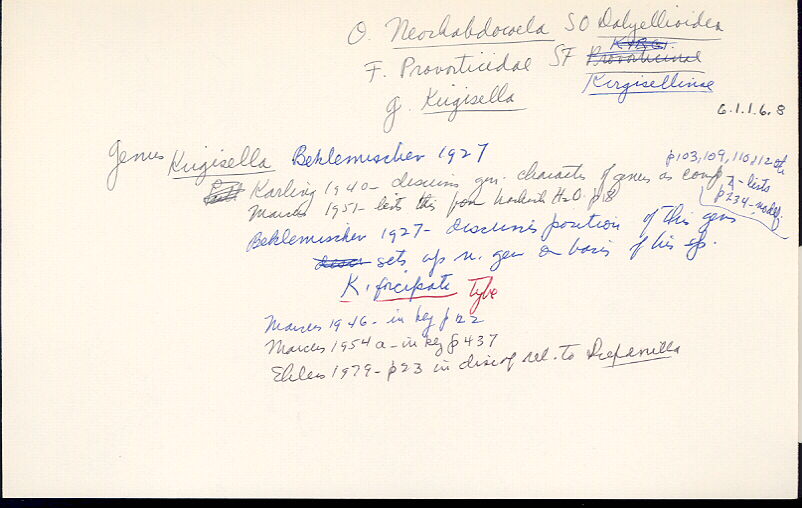 O. Neorhabdocoela SO Dalyellioidea
F. Provorticidae SF Provorticinae
Kirgisellinae
g. Kirgisella
6.1.1.6.8
Genus Kirgisella Beklemischev 1927
p103,109,110,112 oth
Karling 1940 - discuss gen. characters of genus as comp
7 - lists
p234 - modif.
Marcus 1951 - lists this from brackish H2O p18
Beklemischev 1927 - discusses position of this genus
sets up n. gen on basis of his sp.
K. forcipata Type
Marcus 1946 - in key p122
Marcus 1954a - in key p437
Ehlers 1979 - p23 in disc of rel. to Drepanilla